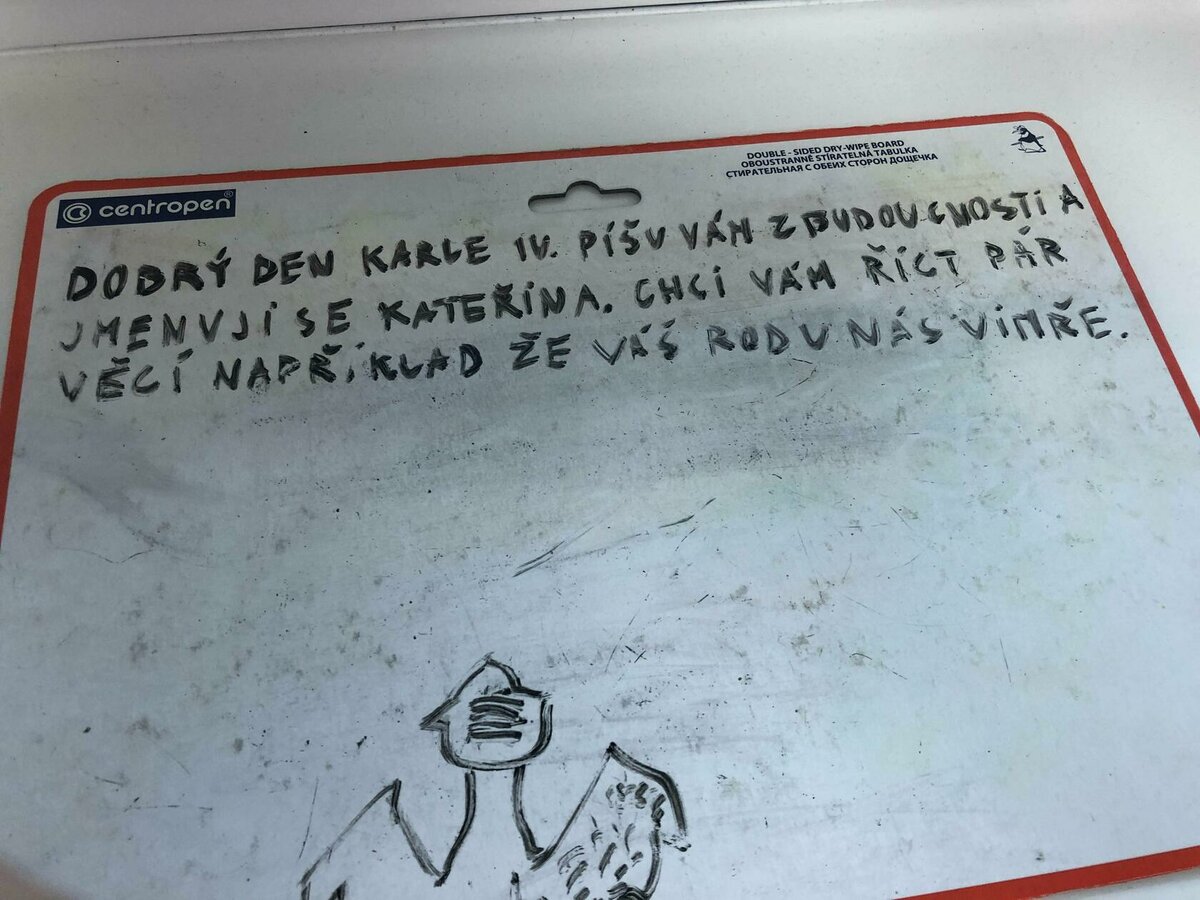 centropen®
DOUBLE - SIDED DRY-WIPE BOARD
OBOUSTRANNĚ STÍRATELNÁ TABULKA
СТИРАТЕЛЬНАЯ С ОБЕИХ СТОРОН ДОЩЕЧКА
DOBRÝ DEN KARLE IV. PÍŠU VÁM Z BUDOUCNOSTI A
JMENUJI SE KATEŘINA. CHCI VÁM ŘÍCT PÁR
VĚCÍ NAPŘÍKLAD ŽE VÁŠ ROD U NÁS VIMŘE.